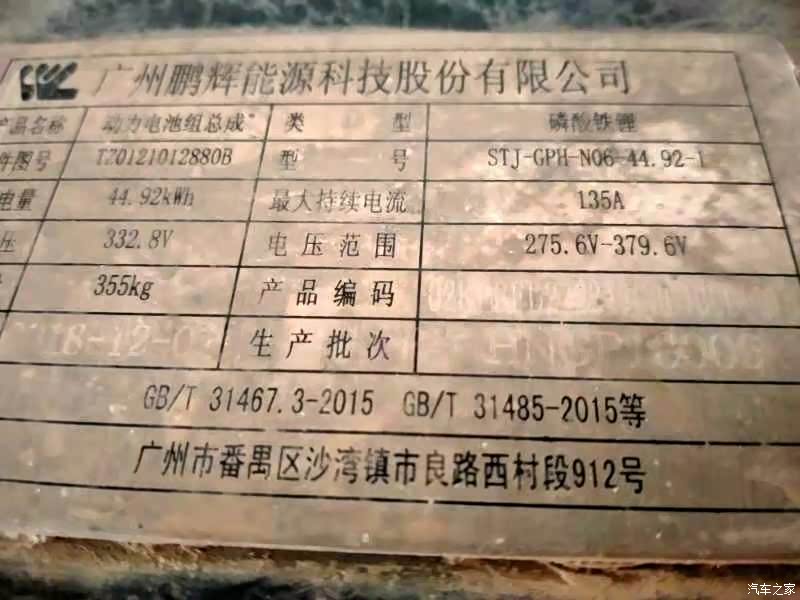 广州鹏辉能源科技股份有限公司
产品名称 动力电池组总成 类型 磷酸铁锂
件图号 TZ0121012880B 型号 STJ-GPH-N06-44.92-1
电量 44.92kWh 最大持续电流 135A
压 332.8V 电压范围 275.6V-379.6V
355kg 产品编码
生产批次
GB/T 31467.3-2015 GB/T 31485-2015等
广州市番禺区沙湾镇市良路西村段912号
汽车之家